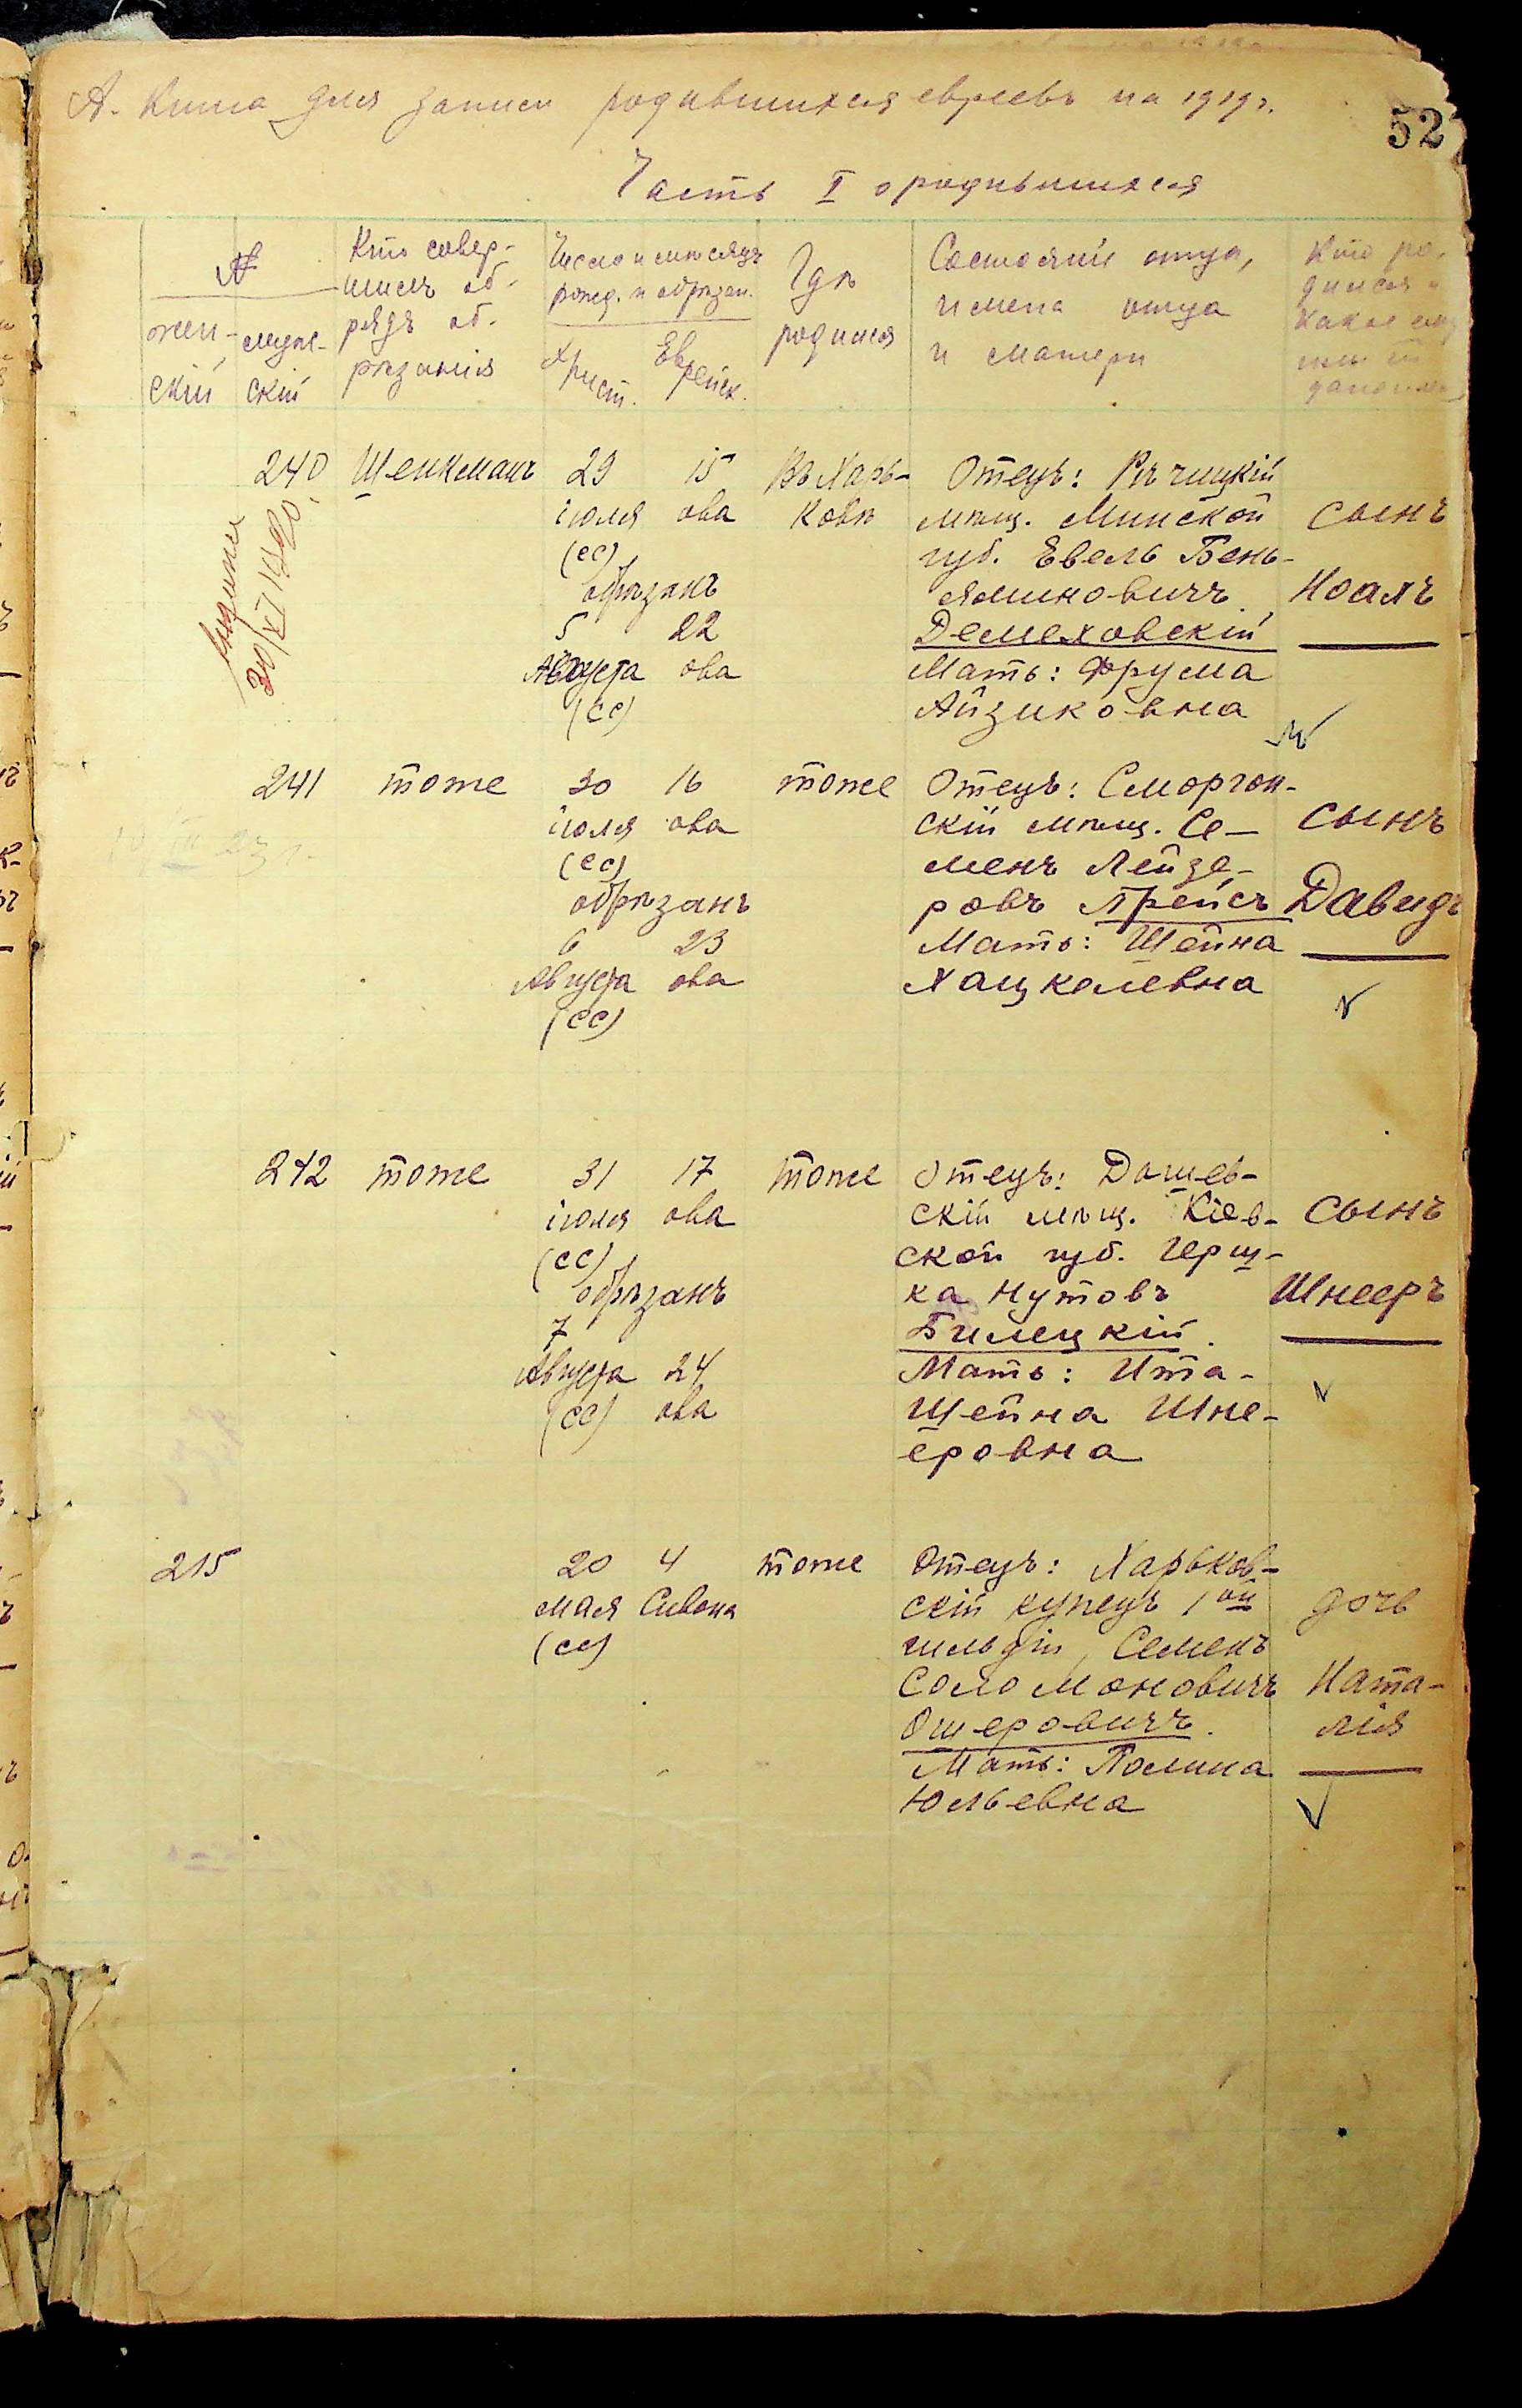 А. Книга для записи родившихся евреевъ на 1919 г.
52
Часть I о родившихся
№
жен-
скій
муж-
скій
Кто совер-
шилъ об-
рядъ об-
рѣзанія
Число и мѣсяцъ
рожд. и обрѣзан.
Христ.
Еврейск.
Гдѣ
родился
Состояніе отца,
имена отца
и матери
Кто ро-
дился и
какое ему
или ей
дано имя
240
Шенкманъ
29 15
іюля ава
(сс)
обрѣзанъ
5 22
Августа ава
(сс)
Въ Харь-
ковѣ
Отецъ: Рѣчицкій
мѣщ. Минской
губ. Евель Бень-
яминовичъ
Демеховскій
Мать: Фрума
Айзиковна
сынъ
Ноахъ
20/XI 1920
241
тоже
30 16
іюля ава
(сс)
обрѣзанъ
6 23
Августа ава
(сс)
тоже
Отецъ: Сморгон-
скій мѣщ. Се-
менъ Лейзе-
ровъ Прейсъ
Мать: Шейна
Хацкелевна
сынъ
Давидъ
242
тоже
31 17
іюля ава
(сс)
обрѣзанъ
7
Августа 24
(сс) ава
тоже
Отецъ: Дашев-
скій мѣщ. Кіев-
ской губ. Герш-
ка Нутовъ
Билецкій.
Мать: Ита-
Шейна Шне-
еровна
сынъ
Шнееръ
215
20 4
мая Сивона
(сс)
тоже
Отецъ: Харьков-
скій купецъ 1ой
гильдіи, Семенъ
Соломоновичъ
Ошеровичъ.
Мать: Полина
Юльевна
дочь
Ната-
лія